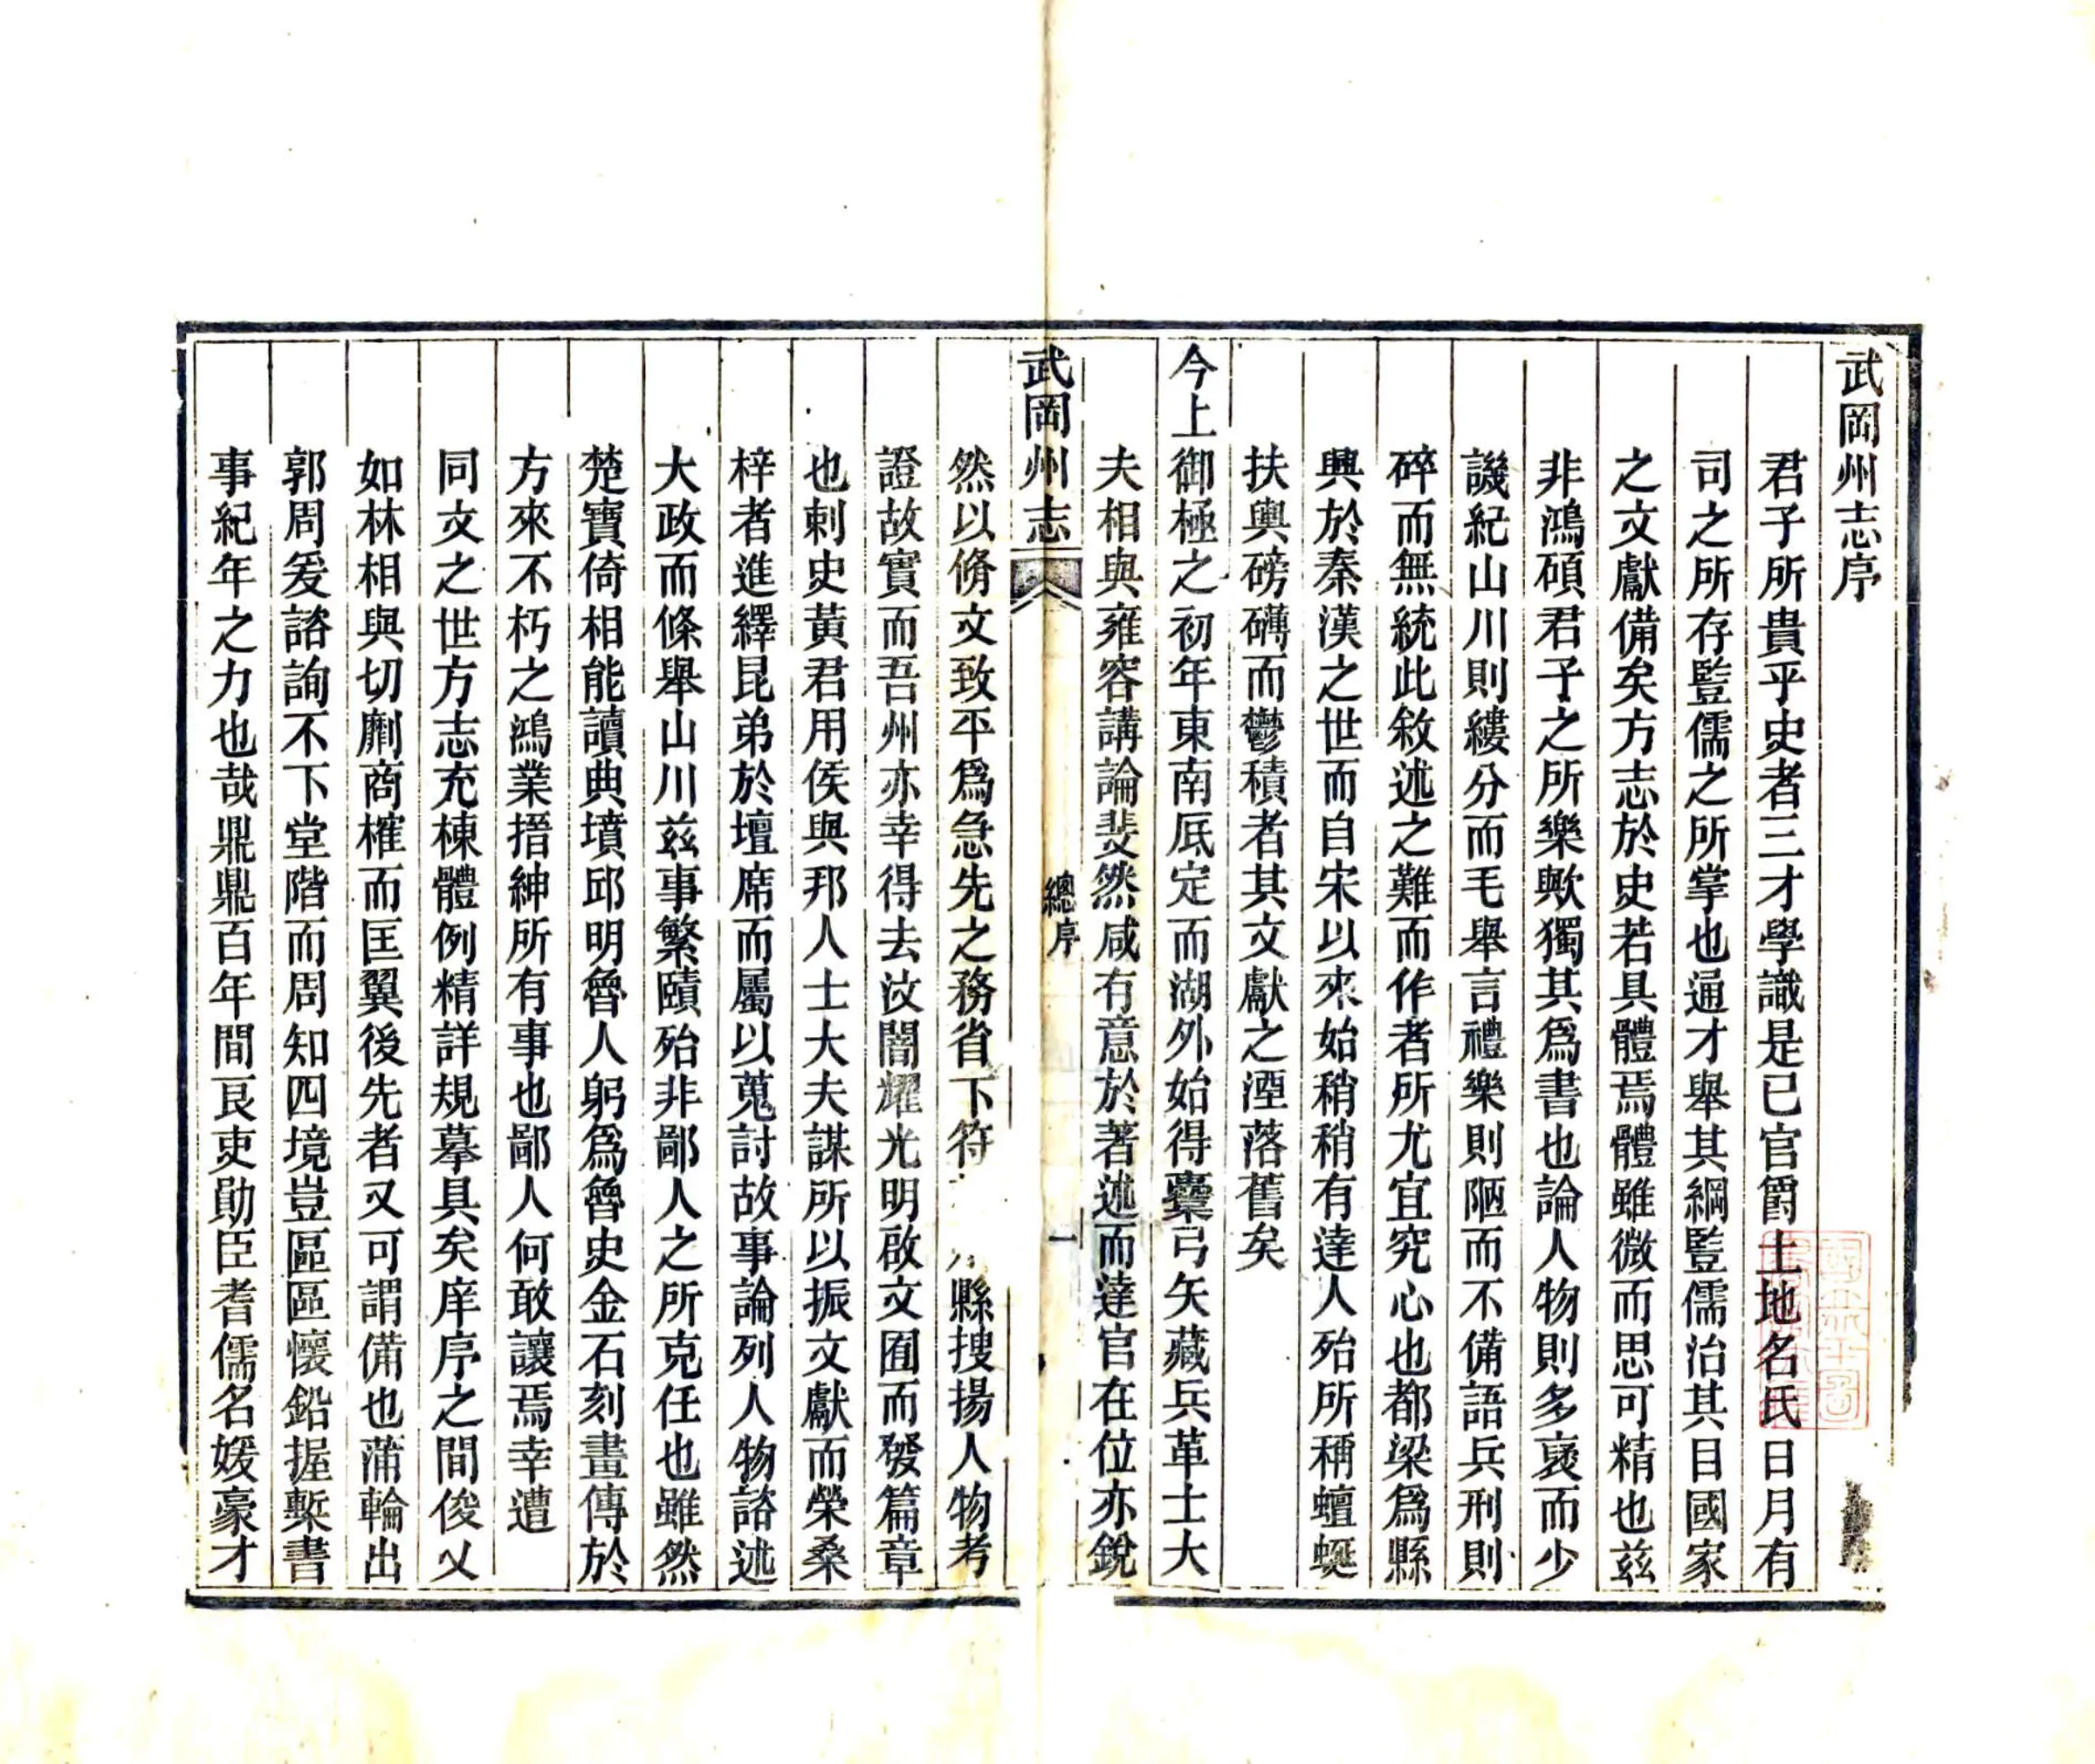 武岡州志序
君子所貴乎史者三才學識是已官爵土地名氏日月有
司之所存監儒之所掌也通才舉其綱監儒治其目國家
之文獻備矣方志於史若具體焉體雖微而思可精也茲
非鴻碩君子之所樂歟獨其爲書也論人物則多襃而少
譏紀山川則縷分而毛舉言禮樂則陋而不備語兵刑則
碎而無統此敘述之難而作者所尤宜究心也都梁爲縣
興於秦漢之世而自宋以來始稍稍有達人殆所稱蟺蜒
扶輿磅礴而鬱積者其文獻之湮落舊矣
今上御極之初年東南底定而湖外始得櫜弓矢藏兵革士大
夫相與雍容講論斐然咸有意於著述而達官在位亦銳
武岡州志
總序
一
然以脩文致平爲急先之務省下符
縣搜揚人物考
證故實而吾州亦幸得去汶闇耀光明啟文囿而發篇章
也刺史黃君用侯與邦人士大夫謀所以振文獻而榮桑
梓者進繹昆弟於壇席而屬以蒐討故事論列人物諮述
大政而條舉山川茲事繁賾殆非鄙人之所克任也雖然
楚寶倚相能讀典墳邱明魯人躬爲魯史金石刻畫傳於
方來不朽之鴻業搢紳所有事也鄙人何敢讓焉幸遭
同文之世方志充棟體例精詳規摹具矣庠序之間俊乂
如林相與切劘商榷而匡翼後先者又可謂備也蒲輪出
郭周爰諮詢不下堂階而周知四境豈區區懷鉛握槧書
事紀年之力也哉鼎鼎百年間良吏勛臣耆儒名媛豪才